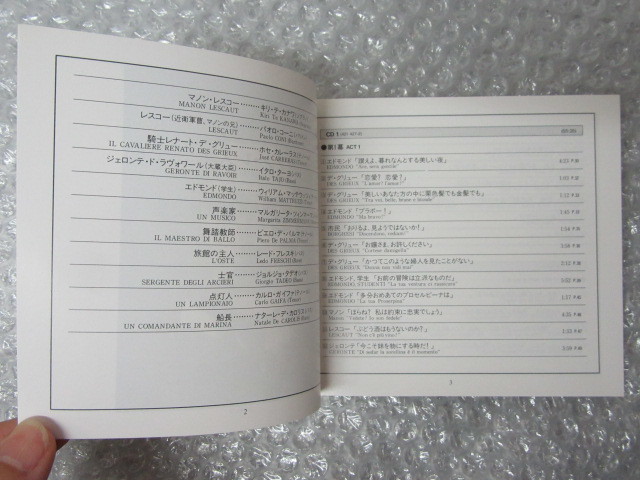 マノン・レスコー……… キリ・テ・カナワ
MANON LESCAUT Kiri Te KANAWA
レスコー(近衛軍曹, マノンの兄)……… パオロ・コーニ
LESCAUT Paolo CONI
騎士レナート・デ・グリュー……… ホセ・カレーラス
IL CAVALIERE RENATO DES GRIEUX José CARRERAS
ジェロンテ・ド・ラヴォワール(大蔵大臣)……… イタロ・ターヨ
GERONTE DI RAVOIR Italo TAJO
エドモンド(学生)……… ウィリアム・マッテウッツィ
EDMONDO William MATTEUZZI
声楽家……… マルガリータ・ツィンマーマン
UN MUSICO Margarita ZIMMERMANN
舞踏教師……… ピエロ・デ・パルマ
IL MAESTRO DI BALLO Piero De PALMA
旅館の主人……… レード・フレスキ
L'OSTE Ledo FRESCHI (Bass)
士官……… ジョルジョ・タデオ
SERGENTE DEGLI ARCIERI Giorgio TADEO (Bass)
点灯人……… カルロ・ガイファ
UN LAMPIONAIO Carlo GAIFA (Tenor)
船長……… ナターレ・デ・カロリス
UN COMANDANTE DI MARINA Natale De CAROLIS
2
CD 1
●第1幕 ACT 1
エドモンド「讃えよ, 暮れなんとする美しい夜」
EDMONDO "Ave, sera gentile" 4:03
デ・グリュー「恋愛? 恋愛!」
DES GRIEUX "L'amor? l'amor!" 1:12
デ・グリュー「美しいあなた方の中に栗色髪でも金髪でも」
DES GRIEUX "Tra voi, belle, brune e bionde"
エドモンド「ブラボー!」
EDMONDO "Ma bravo!" 1:45
市民「おりるよ, 見ようではないか!」
デ・グリュー「お嬢さま, お許しください」
DES GRIEUX "Cortese damigella"
デ・グリュー「かつてこのような婦人を見たことがない」
DES GRIEUX "Donna non vidi mai"
エドモンド, 学生「お前の冒険は立派なものだ」
EDMONDO, STUDENTI "La tua ventura ci rassicura"
エドモンド「多分おめあてのプロセルピーナは」
EDMONDO "La tua Proserpina" 1:17
マノン「ほらね? 私は約束に忠実でしょう」
MANON "Vedete? Io son fedele" 4:35
レスコー「ぶどう酒はもうないのか?」
LESCAUT "Non c'è più vino?"
ジェロンテ「今こそ妹を物にする時だ!」
GERONTE "Di sedur la sorellina è il momento"
3